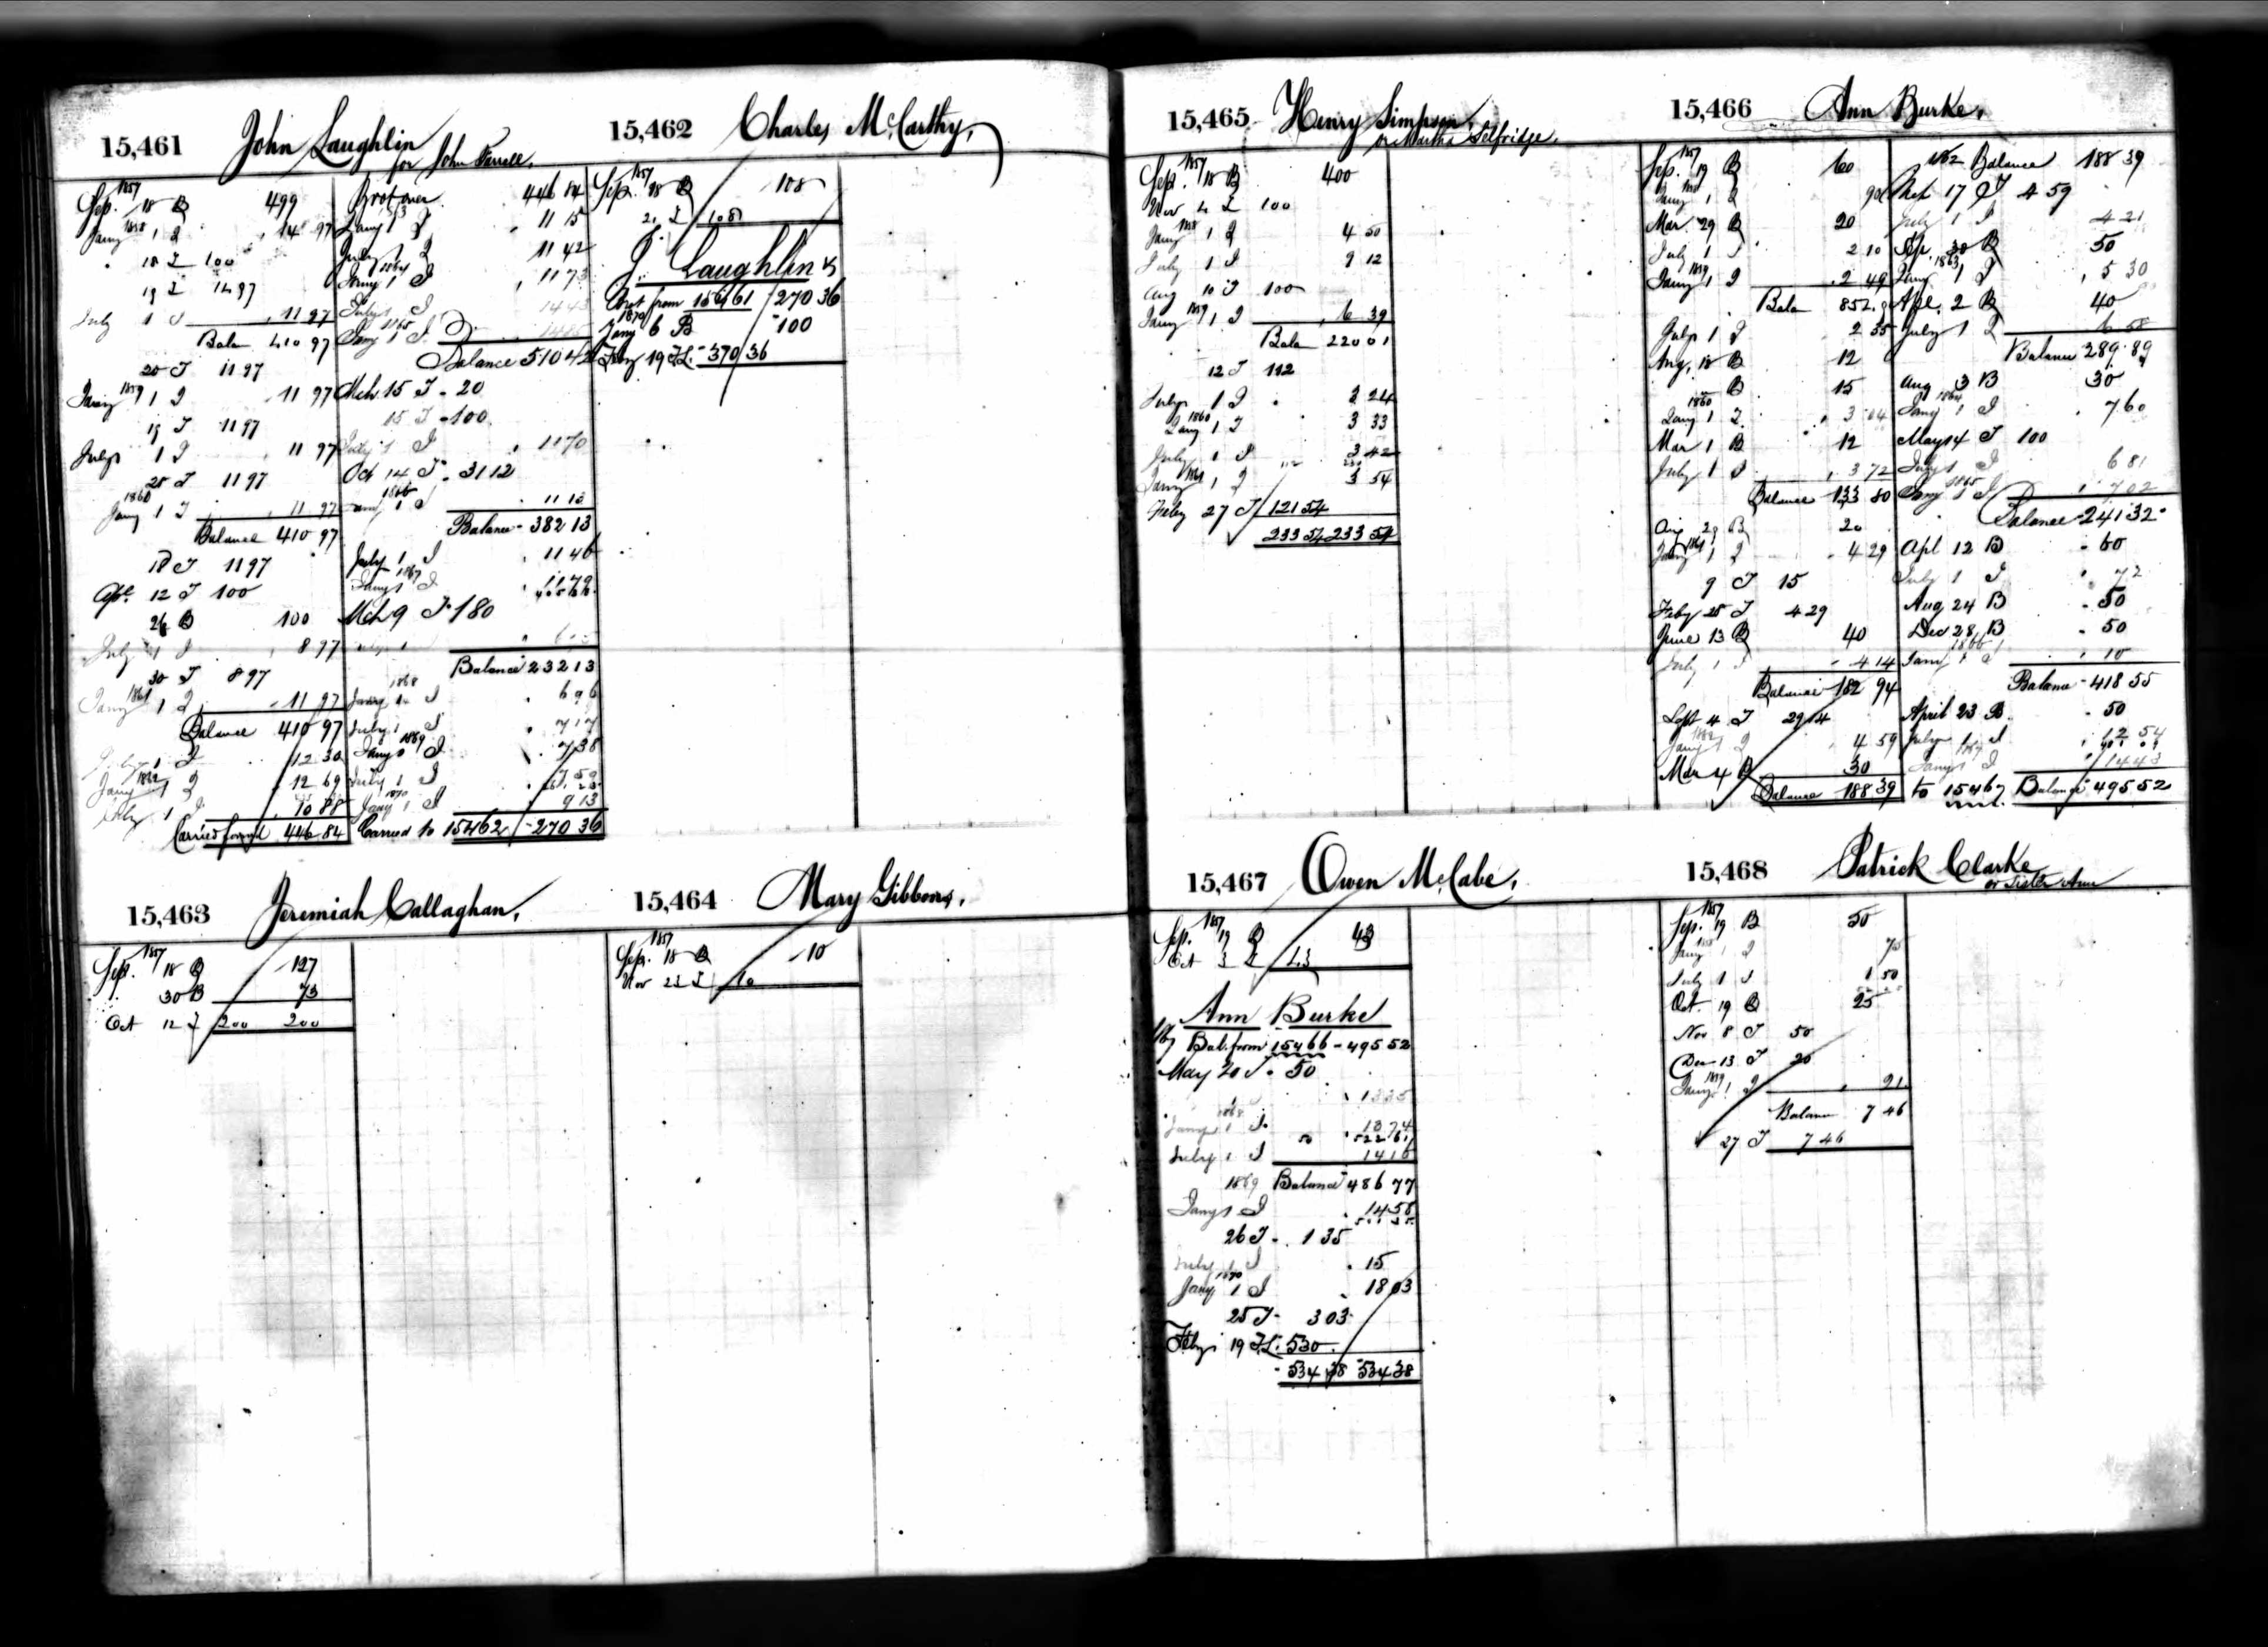 15,461 John Laughlin
for John Farrell.
Sep. 1857 18 B 499
Jany 1858 1 I 14 97
18 I 100
19 I 14 97
July 1 I 11 97
Bala 410 97
20 I 11 97
Jany 1859 1 I 11 97
19 I 11 97
July 1 I 11 97
25 I 11 97
1860
Jany 1 I 11 97
Balance 410 97
18 I 11 97
Apl 12 I 100
26 B 100
July 1 I 8 97
30 I 8 97
Jany 1861 1 I 11 97
Balance 410 97
July 1 I 12 30
Jany 1862 1 I 12 69
July 1 I 10 88
Carried forwd 446 84
Brot over 446 84
Jany 1 I 11 15
July 1 I 11 42
1864
Jany 1 I 11 73
July 1 I 14 43
1865
Jany 1 I
Balance 510 42
Mch 15 I 20
15 I 100
July 1 I 11 70
Oct 14 I 31 12
1866
Jany 1 I
Balance 382 13
July 1 I 11 46
1867
Jany 1 I 11 79
Mch 9 I 180
Balance 232 13
1868
Jany 1 I 6 96
July 1 I 7 17
1869
Jany 1 I 7 38
July 1 I 7 59
1870
Jany 1 I 9 13
Carried to 15462 270 36
15,462 Charles McCarthy,
Sep. 1857 18 B 108
21 I 108
J. Laughlin
Brot from 15461 270 36
1870
Jany 6 B 100
19 I 370 36
15,463 Jeremiah Callaghan,
Sep. 1857 18 B 127
30 B 73
Oct 12 I 200 200
15,464 Mary Gibbons,
Sep. 1857 18 B 10
Nov 23 I 10
15,465 Henry Simpson,
or Martha Selfridge.
Sep. 1857 18 B 400
Nov 4 I 100
Jany 1858 1 I 4 50
July 1 I 9 12
Aug 10 I 100
Jany 1859 1 I 6 39
Bala 220 01
12 I 112
July 1 I 3 24
1860
Jany 1 I 3 33
July 1 I 3 42
Jany 1861 1 I 3 54
Feby 27 I 121 54
233 54 233 54
15,466 Ann Burke,
Sep. 1857 19 B 60
Jany 1858 1 I 90
Mar 29 B 20
July 1 I 2 10
Jany 1859 1 I 2 49
Bala 85
July 1 I 2 35
Aug. 18 B 12
B 15
1860
Jany 1 I 3 04
Mar 1 B 12
July 1 I 3 72
Balance 133 80
Aug 29 B 20
Jany 1861 1 I 4 29
9 I 15
Feby 25 I 4 29
June 13 B 40
July 1 I 4 14
Balance 182 94
Sept 4 I 29 14
Jany 1862 1 I 4 59
Mar 4 B 30
Balance 188 39
1862 Balance 188 39
Mch 17 I 4 59
July 1 I 4 21
Sep. 30 B 50
1863
Jany 1 I 5 30
Apl. 2 B 40
July 1 I 6 58
Balance 289 89
Aug 3 B 30
1864
Jany 1 I 7 60
May 14 I 100
July 1 I 6 81
1865
Jany 1 I 7 02
Balance 241 32
Apl 12 B 60
July 1 I
Aug 24 B 50
Dec 28 B 50
1866
Jany 1 I 10
Balance 418 55
April 23 B 50
July 1 I 12 54
1867
Jany 1 I 14 43
to 15467 Balance 495 52
15,467 Owen McCabe,
Sep. 1857 19 B 43
Oct 3 I 43
Ann Burke
1867 Bal. from 15466 495 52
May 20 I 50
1868
Jany 1 I 13 74
July 1 I 14 16
1869 Balance 486 77
Jany 1 I 14 58
26 I 1 35
July 1 I 15
1870
Jany 1 I 18 03
25 I 3 03
Feby 19 I 530
534 38 534 38
15,468 Patrick Clarke
or Sister Ann
Sep. 1857 19 B 50
Jany 1858 1 I 75
July 1 I 1 50
Oct. 19 B 25
Nov 8 I 50
Dec 13 I 20
Jany 1859 1 I 21
Balance 7 46
27 I 7 46